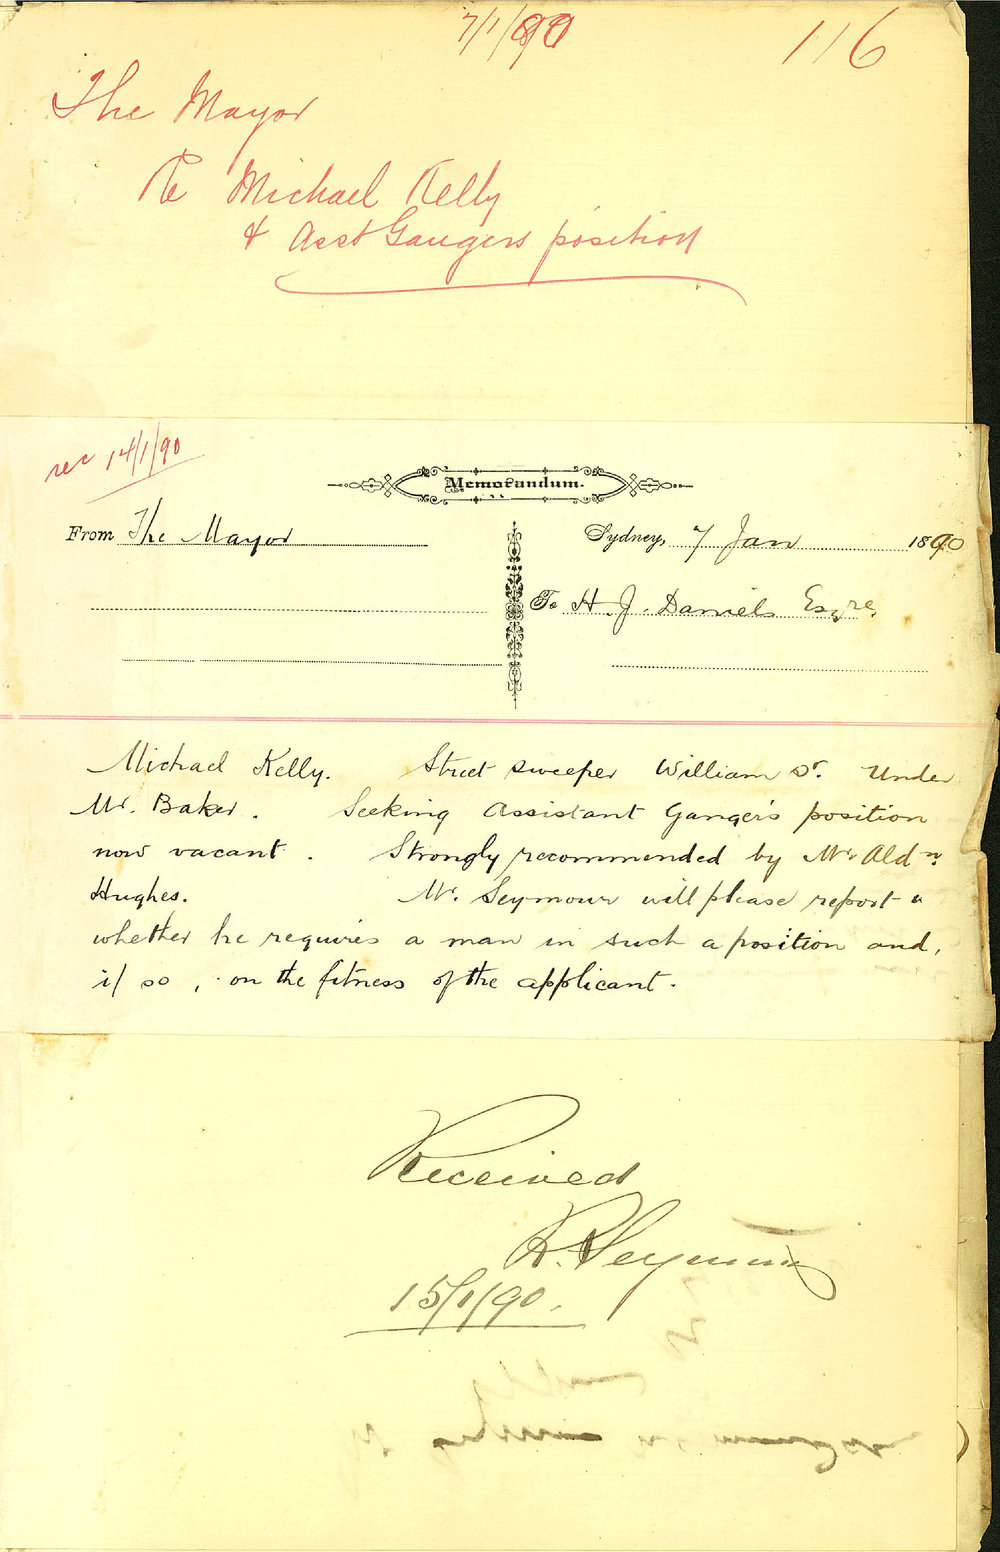 7/1/90
116
The Mayor
Re Michael Kelly
& Asst Gaugers position
rec 14/1/90
Memorandum.
From The Mayor
Sydney, 7 Jan 1890
To H. J. Daniels Esqre,
Michael Kelly. Street sweeper William St. Under
Mr. Baker. Seeking Assistant Ganger's position
now vacant. Strongly recommended by Mr Aldn
Hughes. Mr. Seymour will please report
whether he requires a man in such a position and,
if so, on the fitness of the applicant.
Received
R. Seymour
15/1/90.